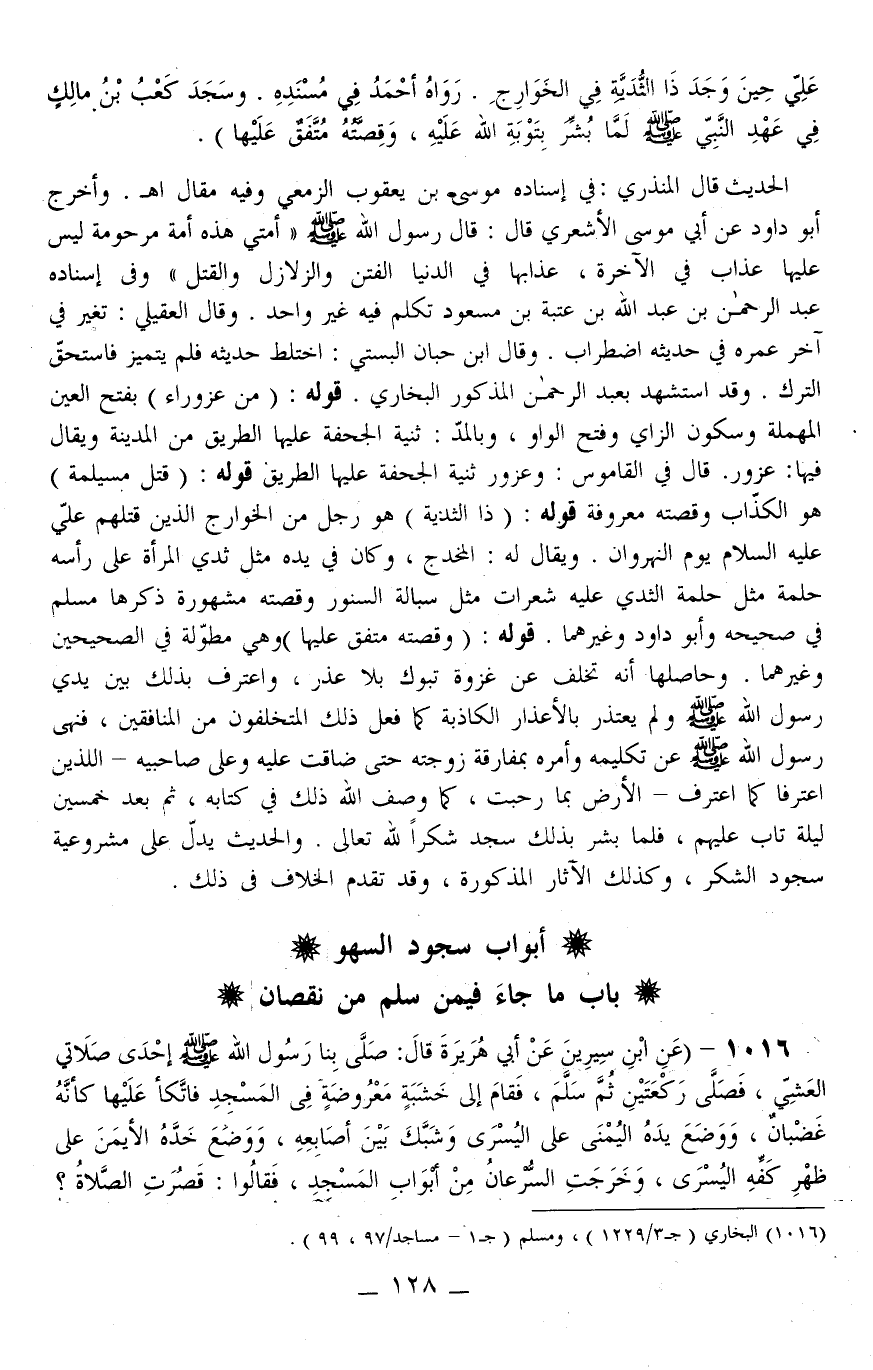 عَلِيّ حِينَ وَجَدَ ذَا الثُّدَيَّةِ فِي الخَوَارِجِ . رَوَاهُ أَحْمَدُ فِي مُسْنَدِهِ . وسَجَدَ كَعْبُ بْنُ مالِكٍ
فِي عَهْدِ النَّبِيّ ﷺ لَمَّا بُشِّرَ بِتَوْبَةِ الله عَلَيْهِ ، وَقِصَّتُهُ مُتَّفَقٌ عَلَيْها ) .
الحديث قال المنذري : في إسناده موسى بن يعقوب الزمعي وفيه مقال اهـ . وأخرج
أبو داود عن أبي موسى الأشعري قال : قال رسول الله ﷺ « أمتي هذه أمة مرحومة ليس
عليها عذاب في الآخرة ، عذابها في الدنيا الفتن والزلازل والقتل » وفى إسناده
عبد الرحمٰن بن عبد الله بن عتبة بن مسعود تكلم فيه غير واحد . وقال العقيلي : تغير في
آخر عمره في حديثه اضطراب . وقال ابن حبان البستي : اختلط حديثه فلم يتميز فاستحقّ
الترك . وقد استشهد بعبد الرحمٰن المذكور البخاري . قوله : ( من عزوراء ) بفتح العين
المهملة وسكون الزاي وفتح الواو ، وبالمدّ : ثنية الجحفة عليها الطريق من المدينة ويقال
فيها: عزور. قال في القاموس : وعزور ثنية الجحفة عليها الطريق قوله : ( قتل مسيلمة )
هو الكذّاب وقصته معروفة قوله : ( ذا الثدية ) هو رجل من الخوارج الذين قتلهم عليّ
عليه السلام يوم النهروان . ويقال له : المخدج ، وكان في يده مثل ثدي المرأة على رأسه
حلمة مثل حلمة الثدي عليه شعرات مثل سبالة السنور وقصته مشهورة ذكرها مسلم
في صحيحه وأبو داود وغيرهما . قوله : ( وقصته متفق عليها )وهي مطوّلة في الصحيحين
وغيرهما . وحاصلها أنه تخلف عن غزوة تبوك بلا عذر ، واعترف بذلك بين يدي
رسول الله ﷺ ولم يعتذر بالأعذار الكاذبة كما فعل ذلك المتخلفون من المنافقين ، فنهى
رسول الله ﷺ عن تكليمه وأمره بمفارقة زوجته حتى ضاقت عليه وعلى صاحبيه – اللذين
اعترفا كما اعترف – الأرض بما رحبت ، كما وصف الله ذلك في كتابه ، ثم بعد خمسين
ليلة تاب عليهم ، فلما بشر بذلك سجد شكراً لله تعالى . والحديث يدلّ على مشروعية
سجود الشكر ، وكذلك الآثار المذكورة ، وقد تقدم الخلاف فى ذلك .
أبواب سجود السهو
باب ما جاءَ فيمن سلم من نقصان
١٠١٦ – (عَنِ ابْنِ سِيرِينَ عَنْ أبي هُرَيرَةَ قَالَ: صَلَّى بِنا رَسُول الله ﷺ إحْدَى صَلَاتي
العَشِيّ ، فَصَلَّى رَكْعَتَيْنِ ثُمَّ سَلَّمَ ، فَقامَ إلى خَشَبَةٍ مَعْرُوضَةٍ فِى المَسْجِدِ فاتَّكأ عَلَيْها كأنَّهُ
غَضْبانٌ ، وَوَضَعَ يدَهُ اليُمْنَى على اليُسْرَى وَشَبَّكَ بَيْنَ أصَابعِهِ ، وَوَضَعَ خَدَّهُ الأيمَنَ على
ظَهْرِ كَفِّهِ اليُسْرَى ، وَخَرَجَتِ السُّرْعانُ مِنْ أبْوَابِ المَسْجِدِ ، فَقالُوا : قَصُرَتِ الصَّلاةُ ؟
(١٠١٦) البخاري ( جـ٣/١٢٢٩ ) ، ومسلم ( جـ١ – مساجد/٩٧ ، ٩٩ ) .
– ١٢٨ –